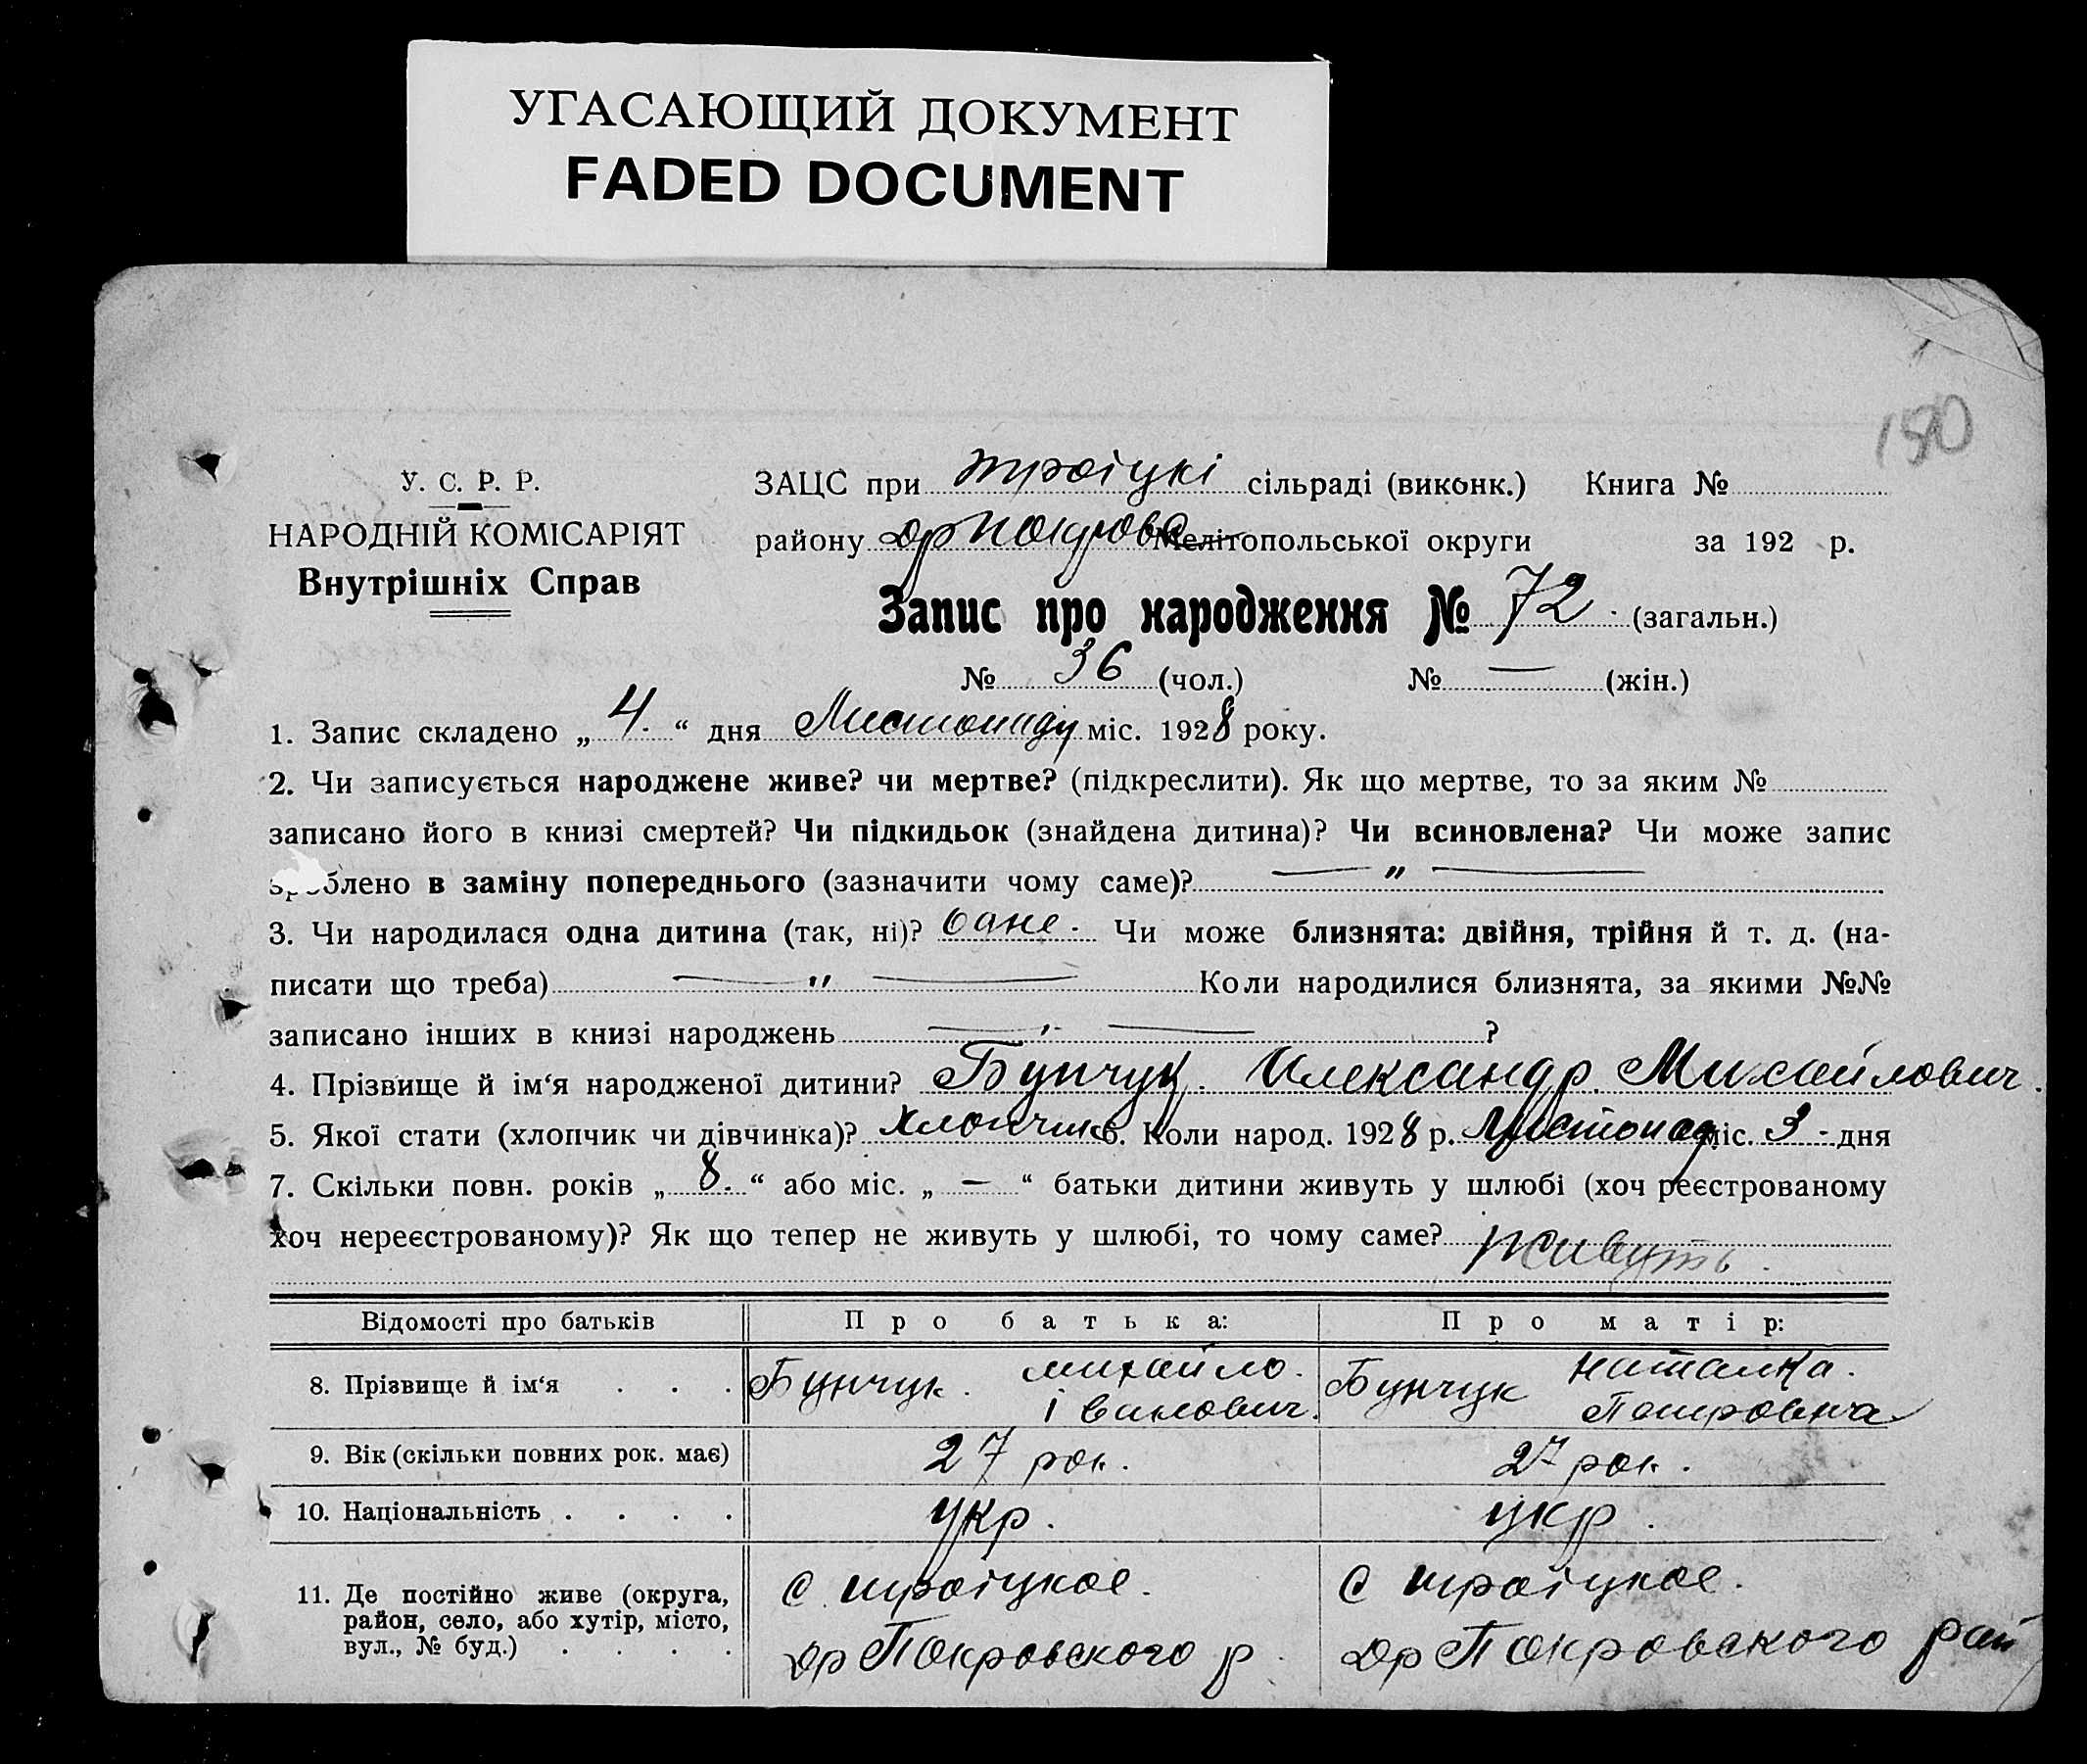 УГАСАЮЩИЙ ДОКУМЕНТ
FADED DOCUMENT
150
У. С. Р. Р.
НАРОДНІЙ КОМІСАРІЯТ
Внутрішніх Справ
ЗАЦС при троіцкі сільраді (виконк.) Книга №
району др Покровс Мелітопольської округи за 192 р.
Запис про народження № 72 (загальн.)
№ 36 (чол.) № — (жін.)
1. Запис складено „ 4. “ дня Листопаду міс. 1928 року.
2. Чи записується народжене живе? чи мертве? (підкреслити). Як що мертве, то за яким №
записано його в книзі смертей? Чи підкидьок (знайдена дитина)? Чи всиновлена? Чи може запис
зроблено в заміну попереднього (зазначити чому саме)? — „ —
3. Чи народилася одна дитина (так, ні)? Одне. Чи може близнята: двійня, трійня й т. д. (на-
писати що треба) — „ — Коли народилися близнята, за якими №№
записано інших в книзі народжень — „ — ?
4. Прізвище й ім‘я народженої дитини? Бунчук. Олександр. Михайлович.
5. Якої стати (хлопчик чи дівчинка)? Хлопчик 6. Коли народ. 1928 р. Листопад міс. 3 - дня
7. Скільки повн. років „ 8. “ або міс. „ — “ батьки дитини живуть у шлюбі (хоч реєстрованому
хоч нереєстрованому)? Як що тепер не живуть у шлюбі, то чому саме? живуть.
Відомості про батьків Про батька: Про матір:
8. Прізвище й ім‘я . . . Бунчук. михайло. іванович. Бунчук Наталка. Петровна
9. Вік (скільки повних рок. має) 27 рок. 27 рок.
10. Національність . . . . укр. укр.
11. Де постійно живе (округа,
район, село, або хутір, місто,
вул., № буд.) . . . .
с троіцкое.
др Покровского р.
с троіцкое.
др Покровского рай